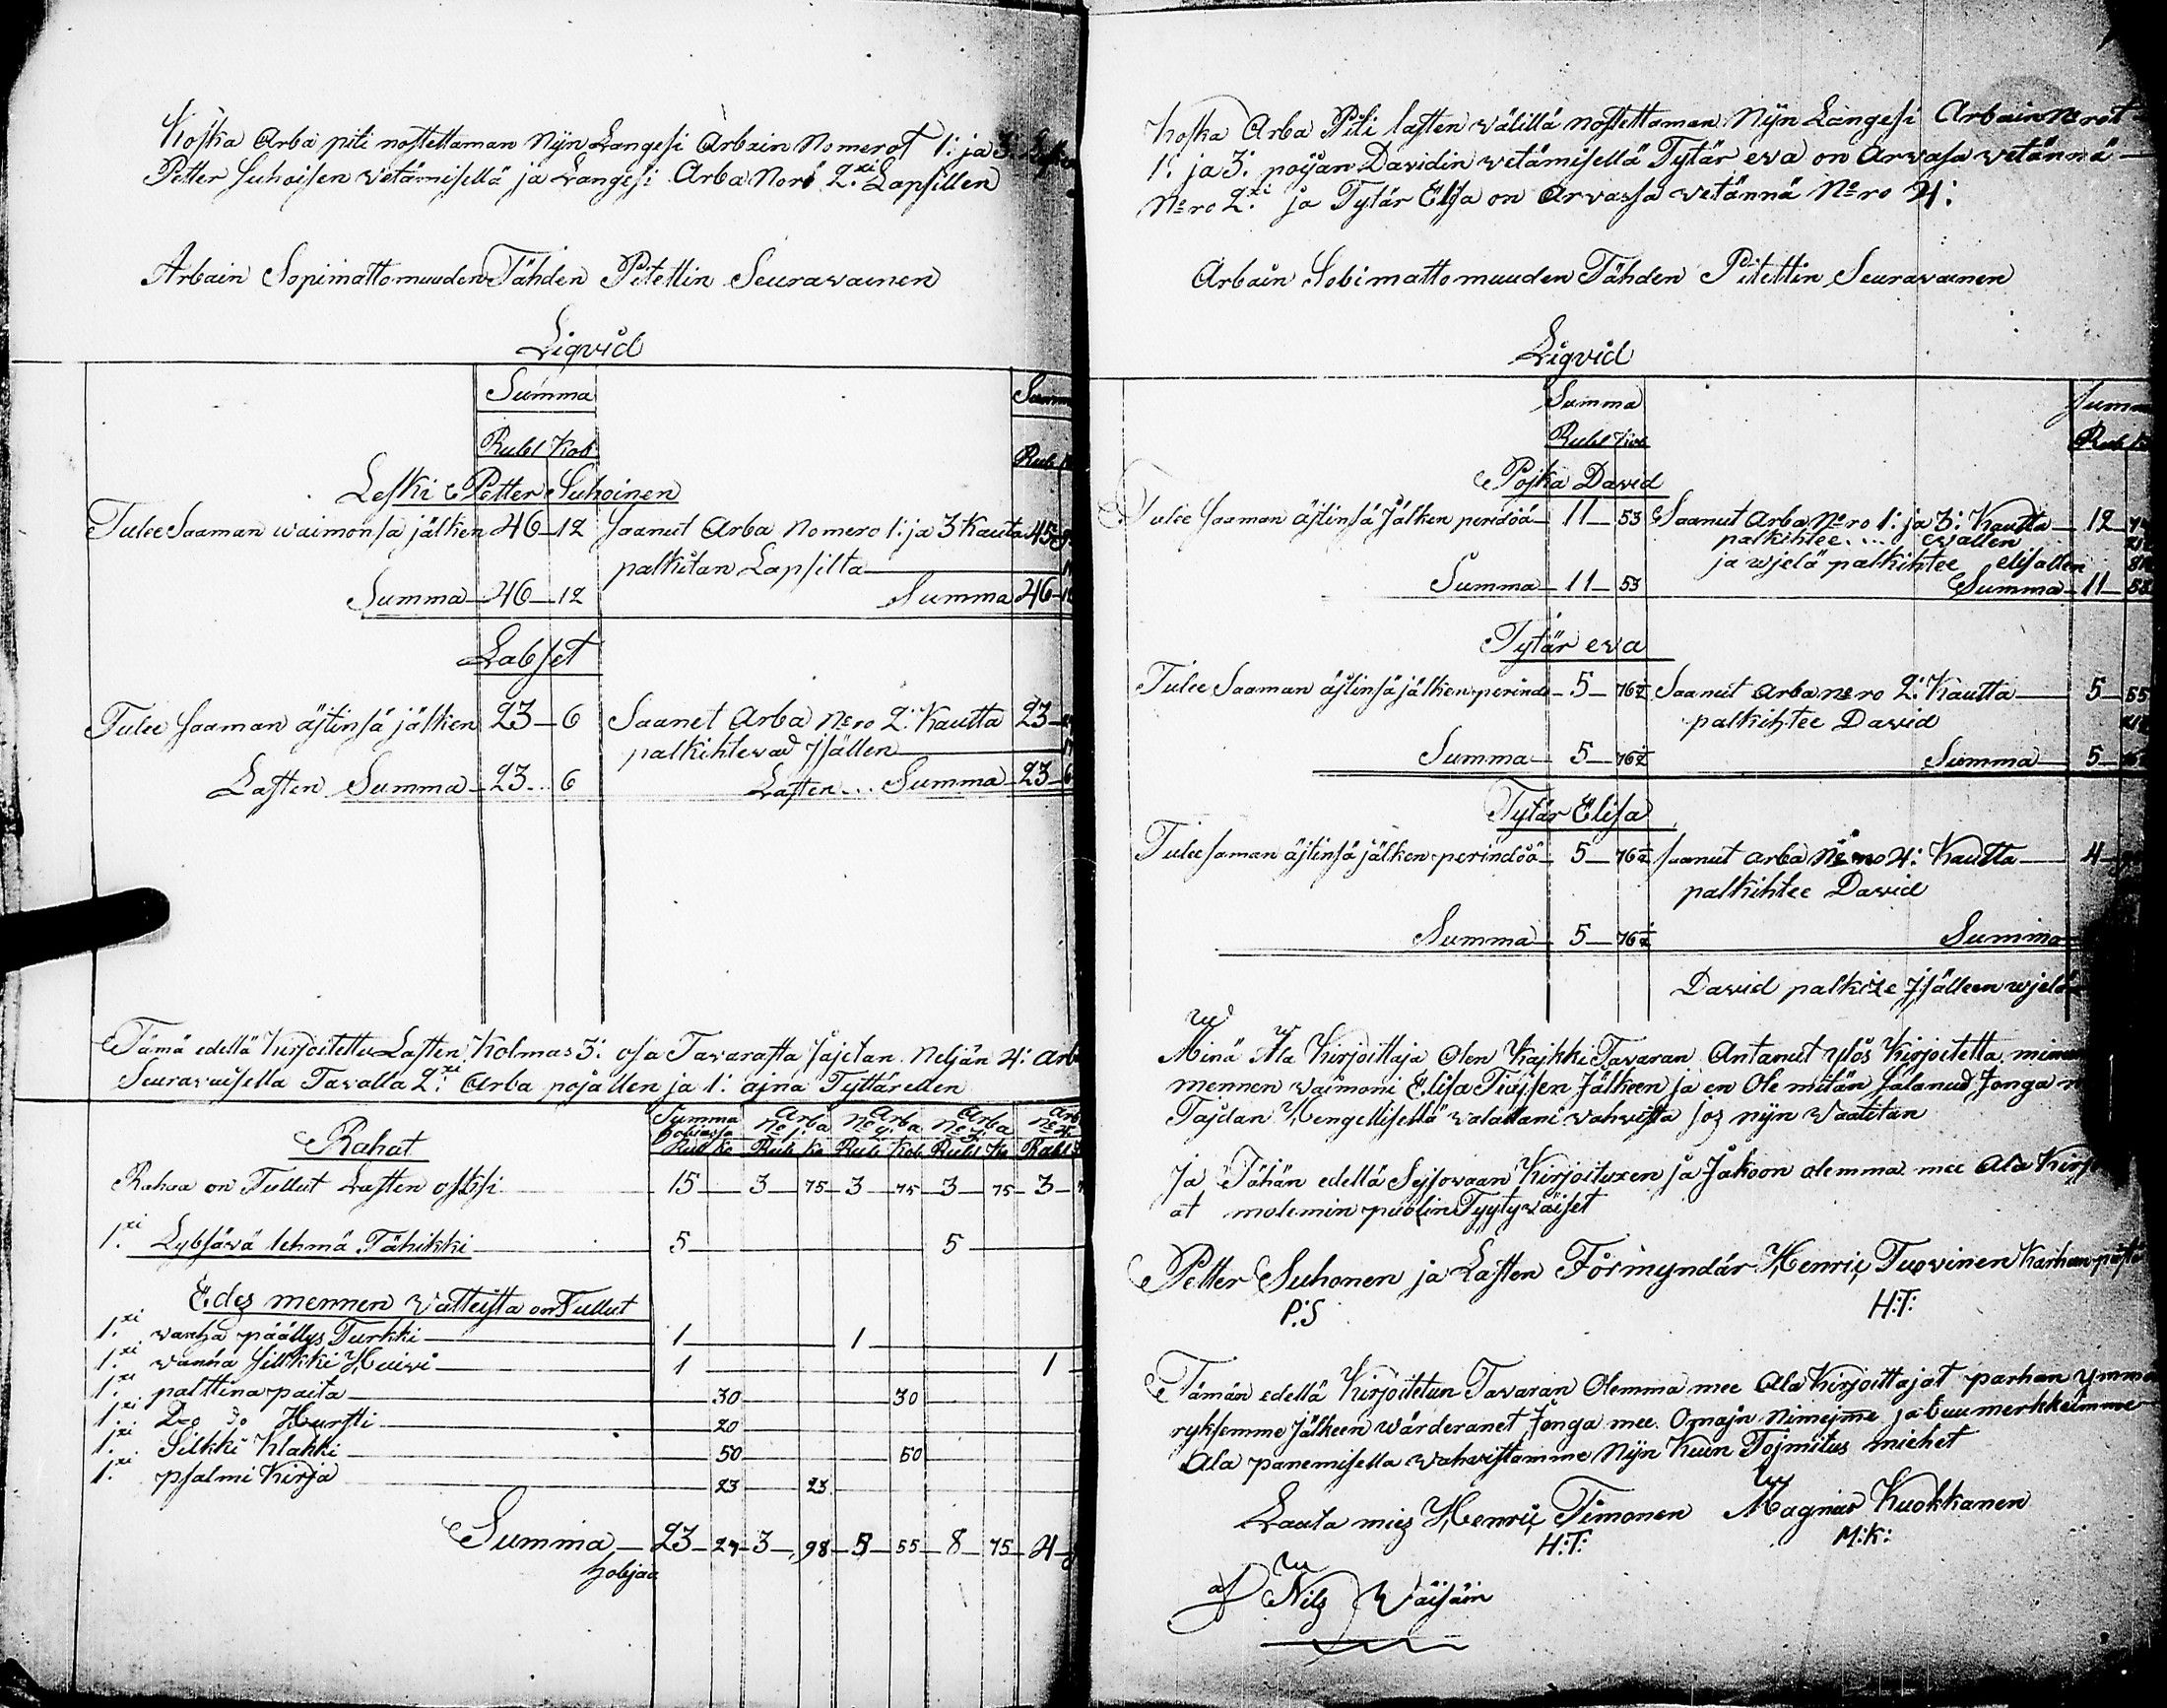 Koska Arba piti nostettaman Nijn Langesi Arbain Nomerot 1: ja 3:
Petter Suhoisen vetämisellä ja Langesi Arba Noro 2:xi Lapsillen
Arbain Sopimattomuuden Tähden Pitettin Seurawainen
Liqvid
Summa Summ
Rubl Kob Rub
Leski Petter Suhoinen
Tulee Saaman waimonsa jälken 46 12 saanut Arba Nomero 1: ja 3 Kautta 45
palkitan Lapsilta
Summa 46 12 Summa 46
Labset
Tulee saaman äjtinsä jälken 23 6 Saanet Arba Nero 2: Kautta 23
palkihtevad Jsällen
Lasten Summa 23 6 Lasten Summa 23
Tämä edellä kirjoitettu Lasten Kolmas 3: osa Tavarasta Jajetan Neljän 4: Arb
Seuravaisella Tavalla 2:xi Arba pojallen ja 1: ajna Tyttärellen
Summa hobiassa Arba No 1: Arba No 2: Arba No 3: Arb No 4
Rahat
Rub Ko Rub Ko Rub Kob Rubl Ko Rubl
Rahaa on Tullut Lasten osksi 15 3 75 3 75 3 75 3
1:xi Lybsävä lehmä Tähikki 5 5
Edes mennen Vatteista on Tullut
1:xi vanha päällys Turkki 1 1
1:xi vanha silkki Huivi 1 1
1:xi palttina paita 30 30
1:xi Do do Hursti 20
1:xi Silkki Klakki 50 50
1:xi psalmi Kirja 23 23
Summa 23 23 3 98 5 55 8 75 4
hobjaa
Koska Arba Piti lasten välillä nostettaman Nijn Langesi Arbain Nerot
1: ja 3: pojan Davidin vetämisellä Tytär eva on Arvasa vetännä
Nero 2:xi ja Tytär Elisa on Arvassa vetännä Nero 4:
Arbain Sobimattomuuden Tähden Pitettin Seuravainen
Liqvid
Summa Summ
Rubl Kob Rub
Pojka David
Tulee saaman äjtinsä Jälken perindöä 11 53 Saanut Arba Nero 1: ja 3: Kautta 12
palkihtee evallen
ja wjelä palkihtee elisallen
Summa 11 53 Summa 11 53
Tytär eva
Tulee Saaman äjtinsä jälken perindö 5 76½ Saanut arba nero 2: Kautta 5 55
palkihtee David
Summa 5 76½ Summa 5
Tytär Elisa
Tulee saman äjtinsä jälken perindöä 5 76½ saanut arba Nero 4: Kautta 4
palkihtee David
Summa 5 76½ Summa
David palkize Jsälleen wjelä
Minä Ala Kirjoittaja Olen Kajkki Tavaran Antanut ylös Kirjoitetta
mennen vaimoni Elisa Tiajsen Jälkeen ja en Ole mitän Salanud Jonga
Tajdan Hengellisellä valallani vahvista jos nijn Vaatitan
Ja Tähän edellä Sejsovaan Kirjoituxen ja Jakoon olemma mee Ala Kirj
at molemin puolin Tyytyväiset
Petter Suhonen ja Lasten Förmyndär Henric Tuovinen
P:S H:T:
Tämän edellä Kirjoitetun Tavaran Olemma mee Ala Kirjoittajat parhan ymmä
ryksemme Jälkeen värderanet Jonga mee Omajn Nimejme ja buumerkkeimme
Ala panemisella vahvistamme Nijn Kuin Tojmitus miehet
Lauta mies Henric Timonen Magnus Kuokkanen
H:T: M:K:
af Nils Väisäin